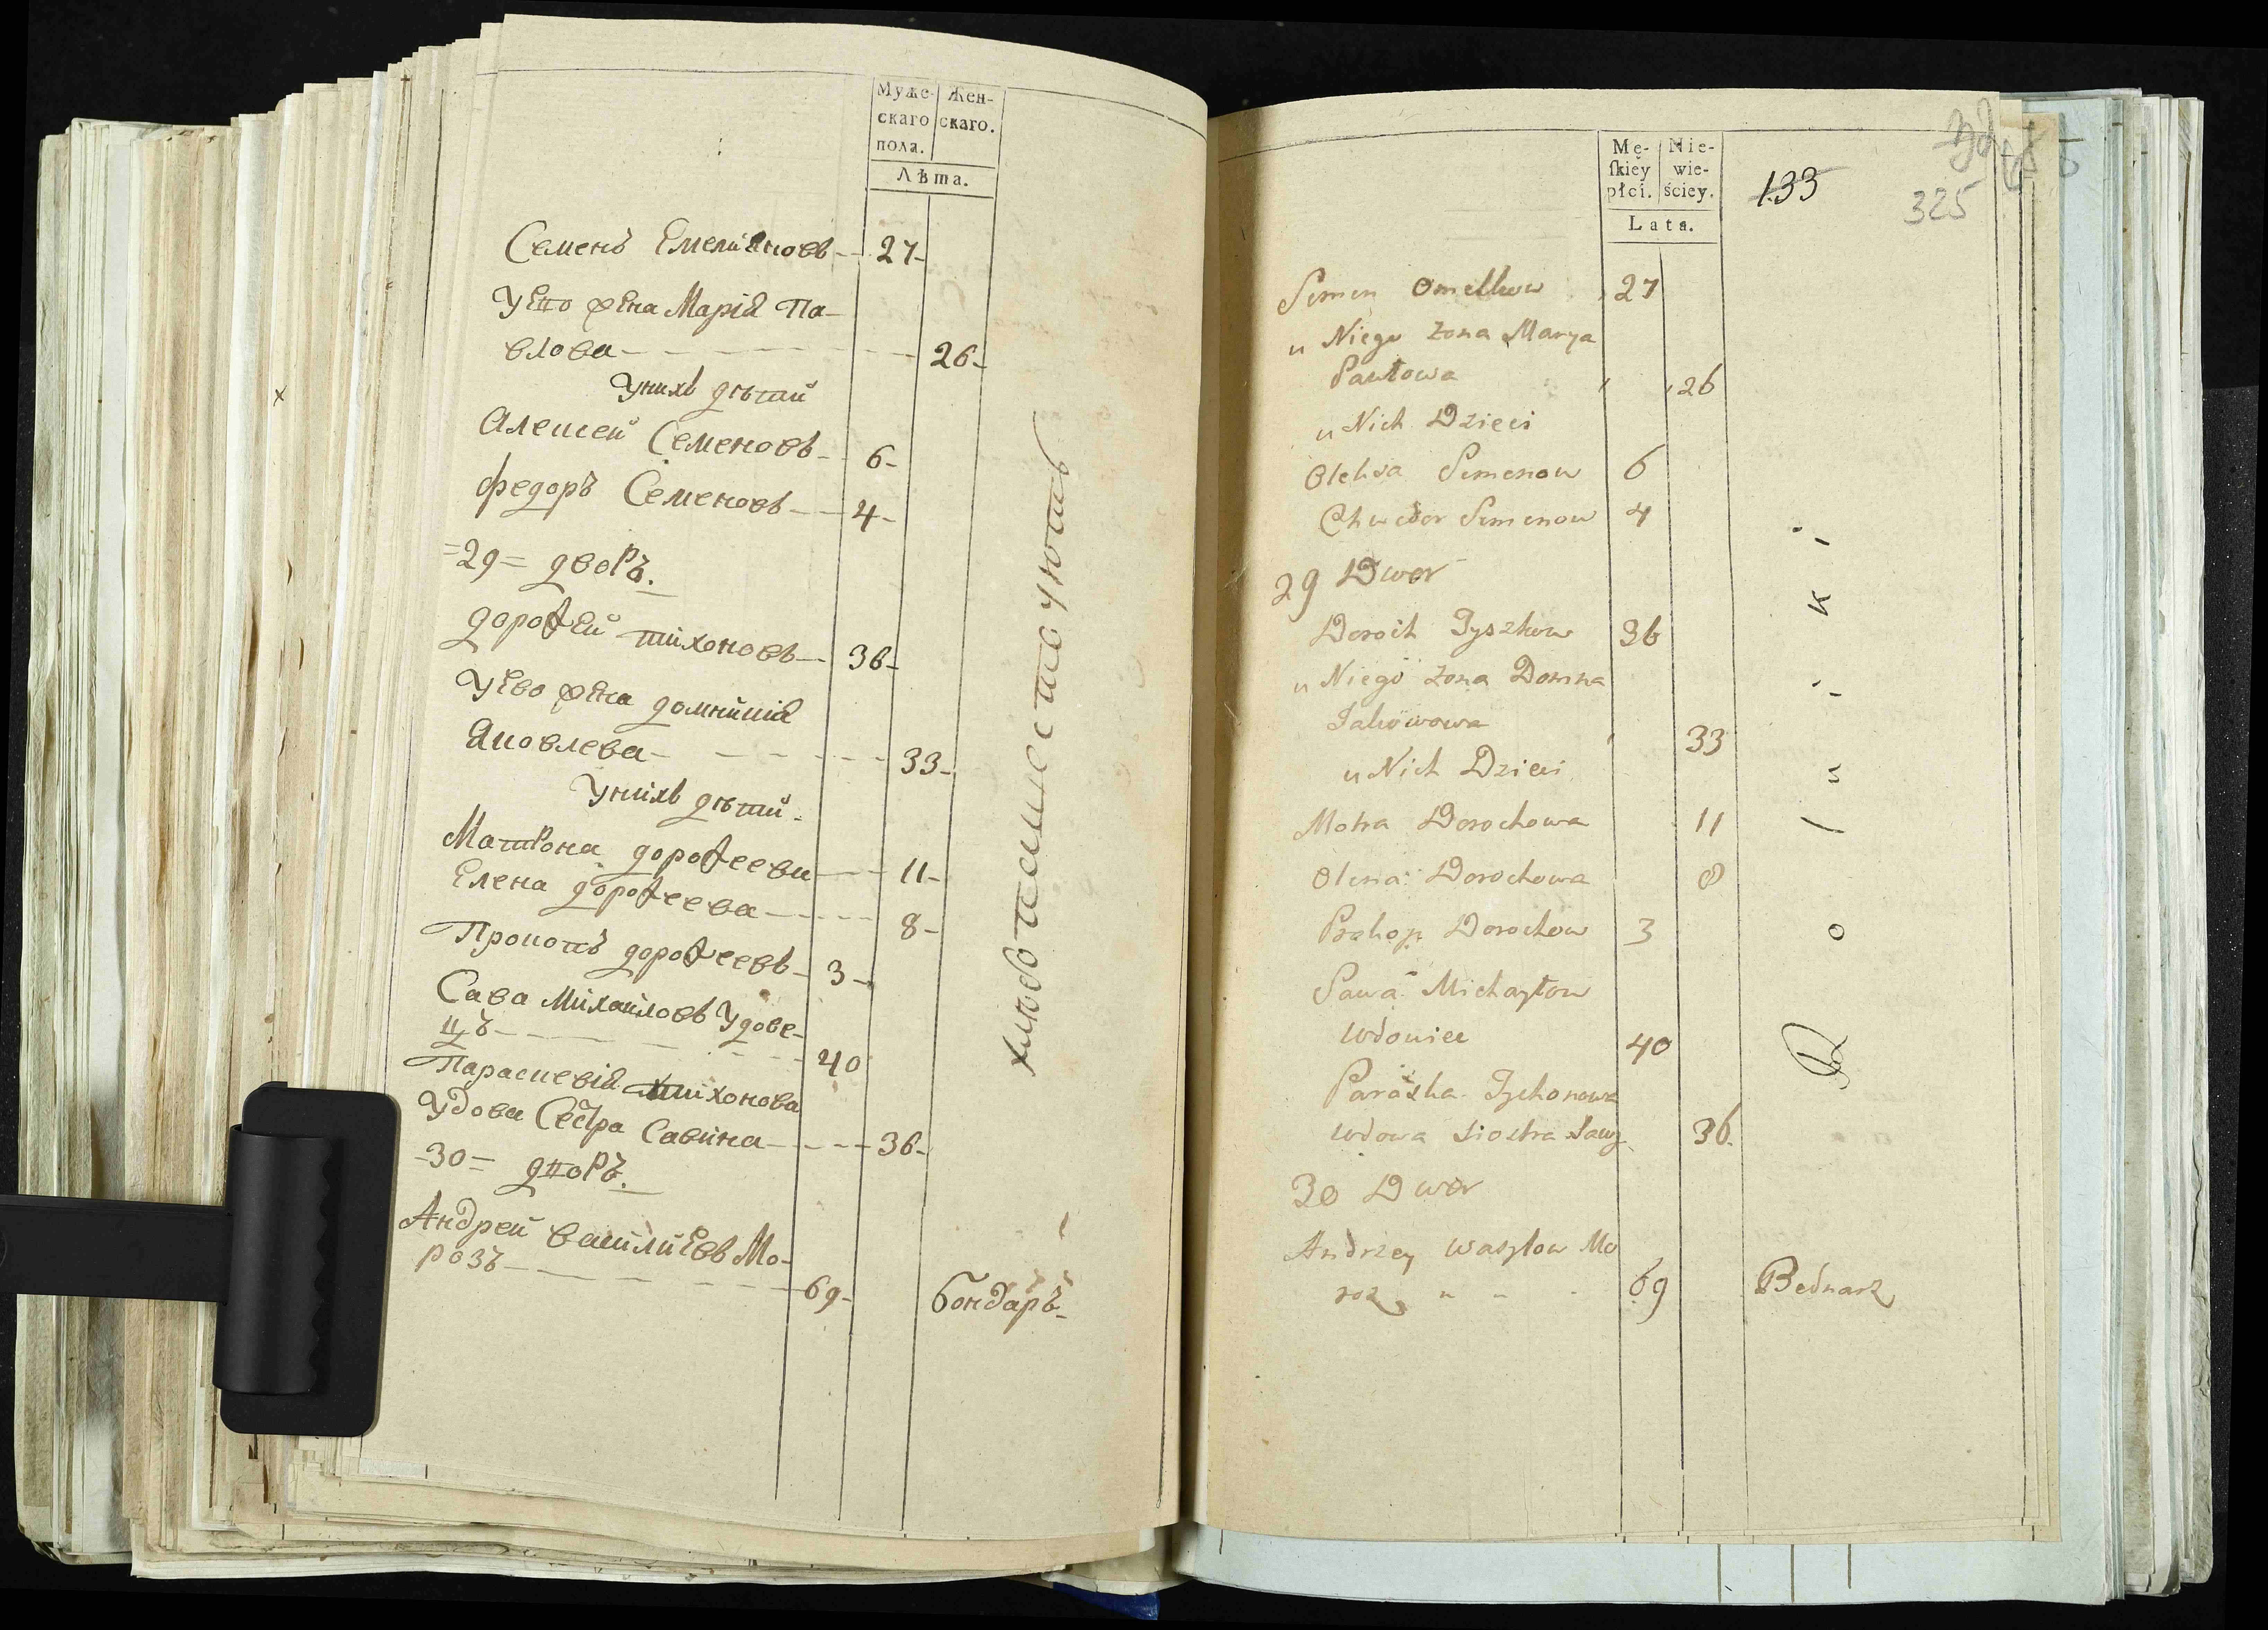 Муже- Жен-
скаго скаго.
пола.
Лѣта.
Семенъ Емелиановъ 27
Уево жена Мария Па-
влова 26
Унихъ дѣтии
Алексеи Семеновъ 6
Федоръ Семеновъ 4
=29= дворъ.
Дорофеи Тихоновъ 36
Уево жена Домникия
Яковлева 33
Унихъ дѣтии
Матрона Дорофеева 11
Елена Дорофеева 8
Прокопъ Дорофеевъ 3
Сава Михаиловъ Удове-
цъ 40
Параскевия Тихонова
Удова Сестра Савина 36
=30= дворъ.
Андреи Василиевъ Мо-
розъ 69 бондаръ
хлѣбопашествуютъ
Mę- Nie-
ſkiéy wie-
płci. ściey.
Lata.
133
325
Semen Omelkow 27
u Niego żona Marya
Pawłowa 26
u Nich Dzieci
Oleksa Semenow 6
Chwedor Semenow 4
29 Dwor
Doroch Tyszkow 36
u Niego żona Domna
Jakowowa 33
u Nich Dzieci
Motra Dorochowa 11
Olena Dorochowa 8
Prokop Dorochow 3
Sawa Michayłow
wdowiec 40
Paraska Tychonowa
wdowa siostra Sawy 36
30 Dwor
Andrzey Wasylow Mo
roz 69 Bednarz
Rolniki